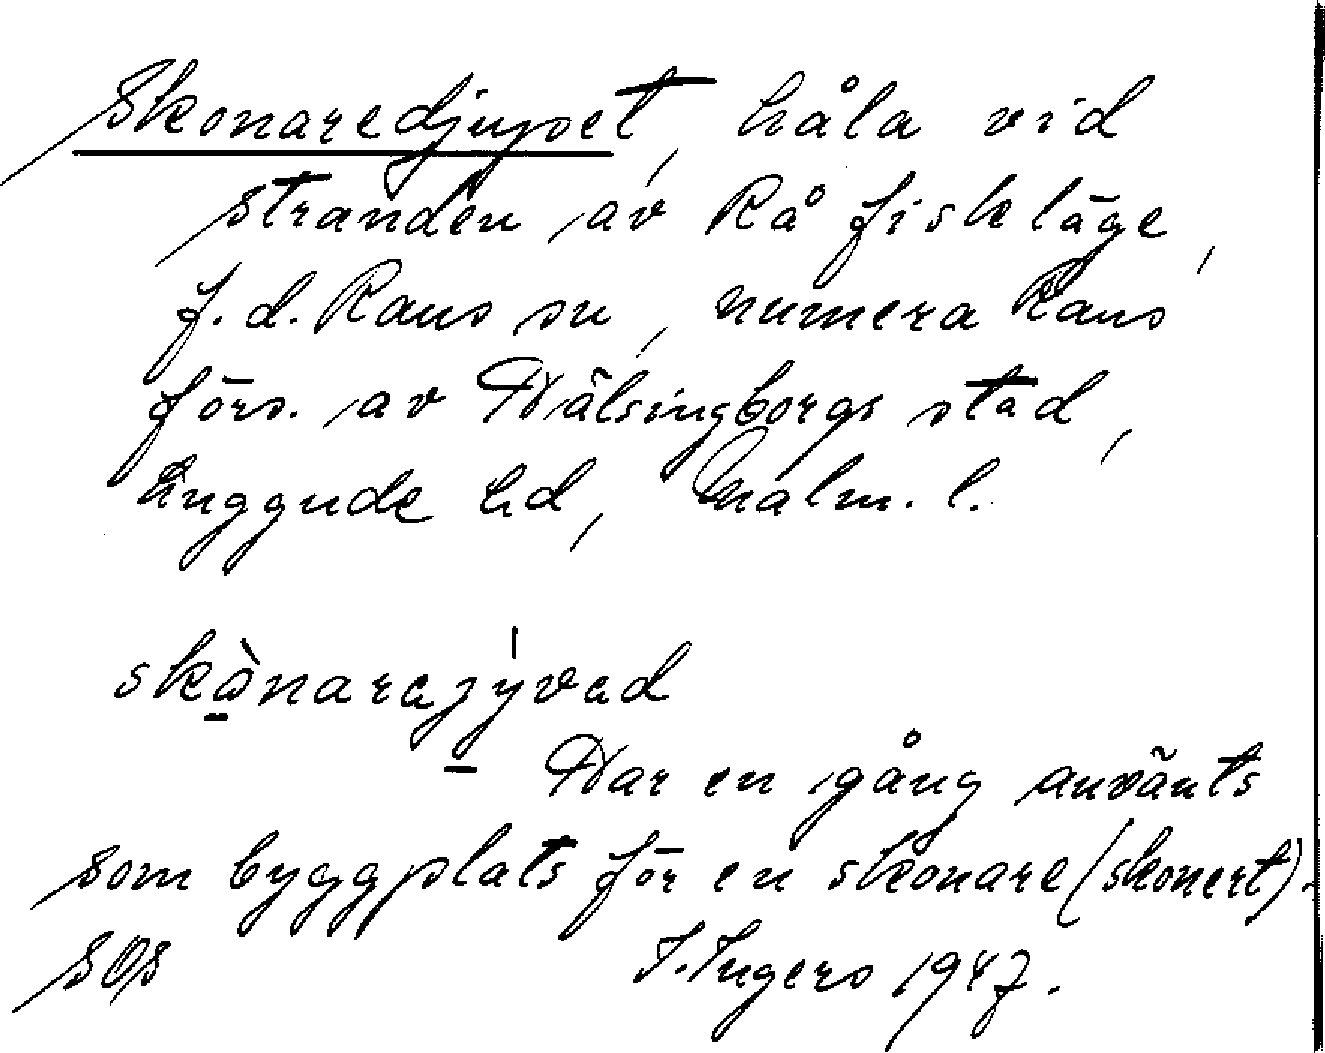 Skonaredjupet, håla vid
stranden av Rå fiskläge,
f.d. Raus sn, numera Raus
förs. av Hälsingborgs stad,
Luggude hd, Malm. l.
skònarejýved
Har en gång använts
som byggplats för en skonare (skonert).
SOS I. Ingers 1947.